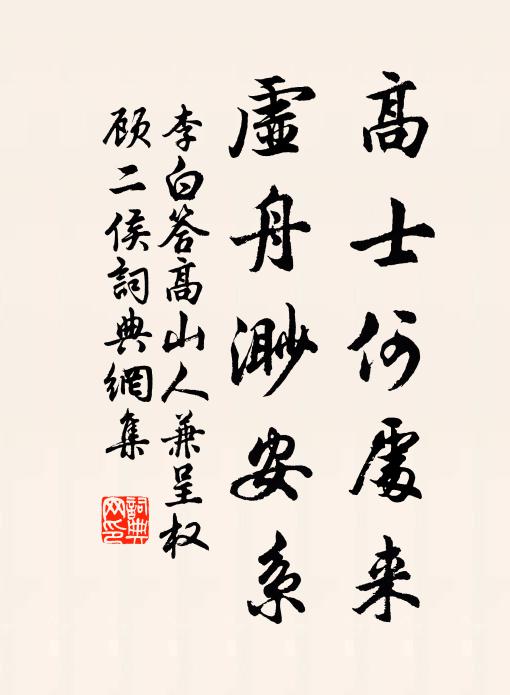 高士何處来
虛舟渺安系
李白答高山人兼呈权
顾二侯詞典網集
詞典網印